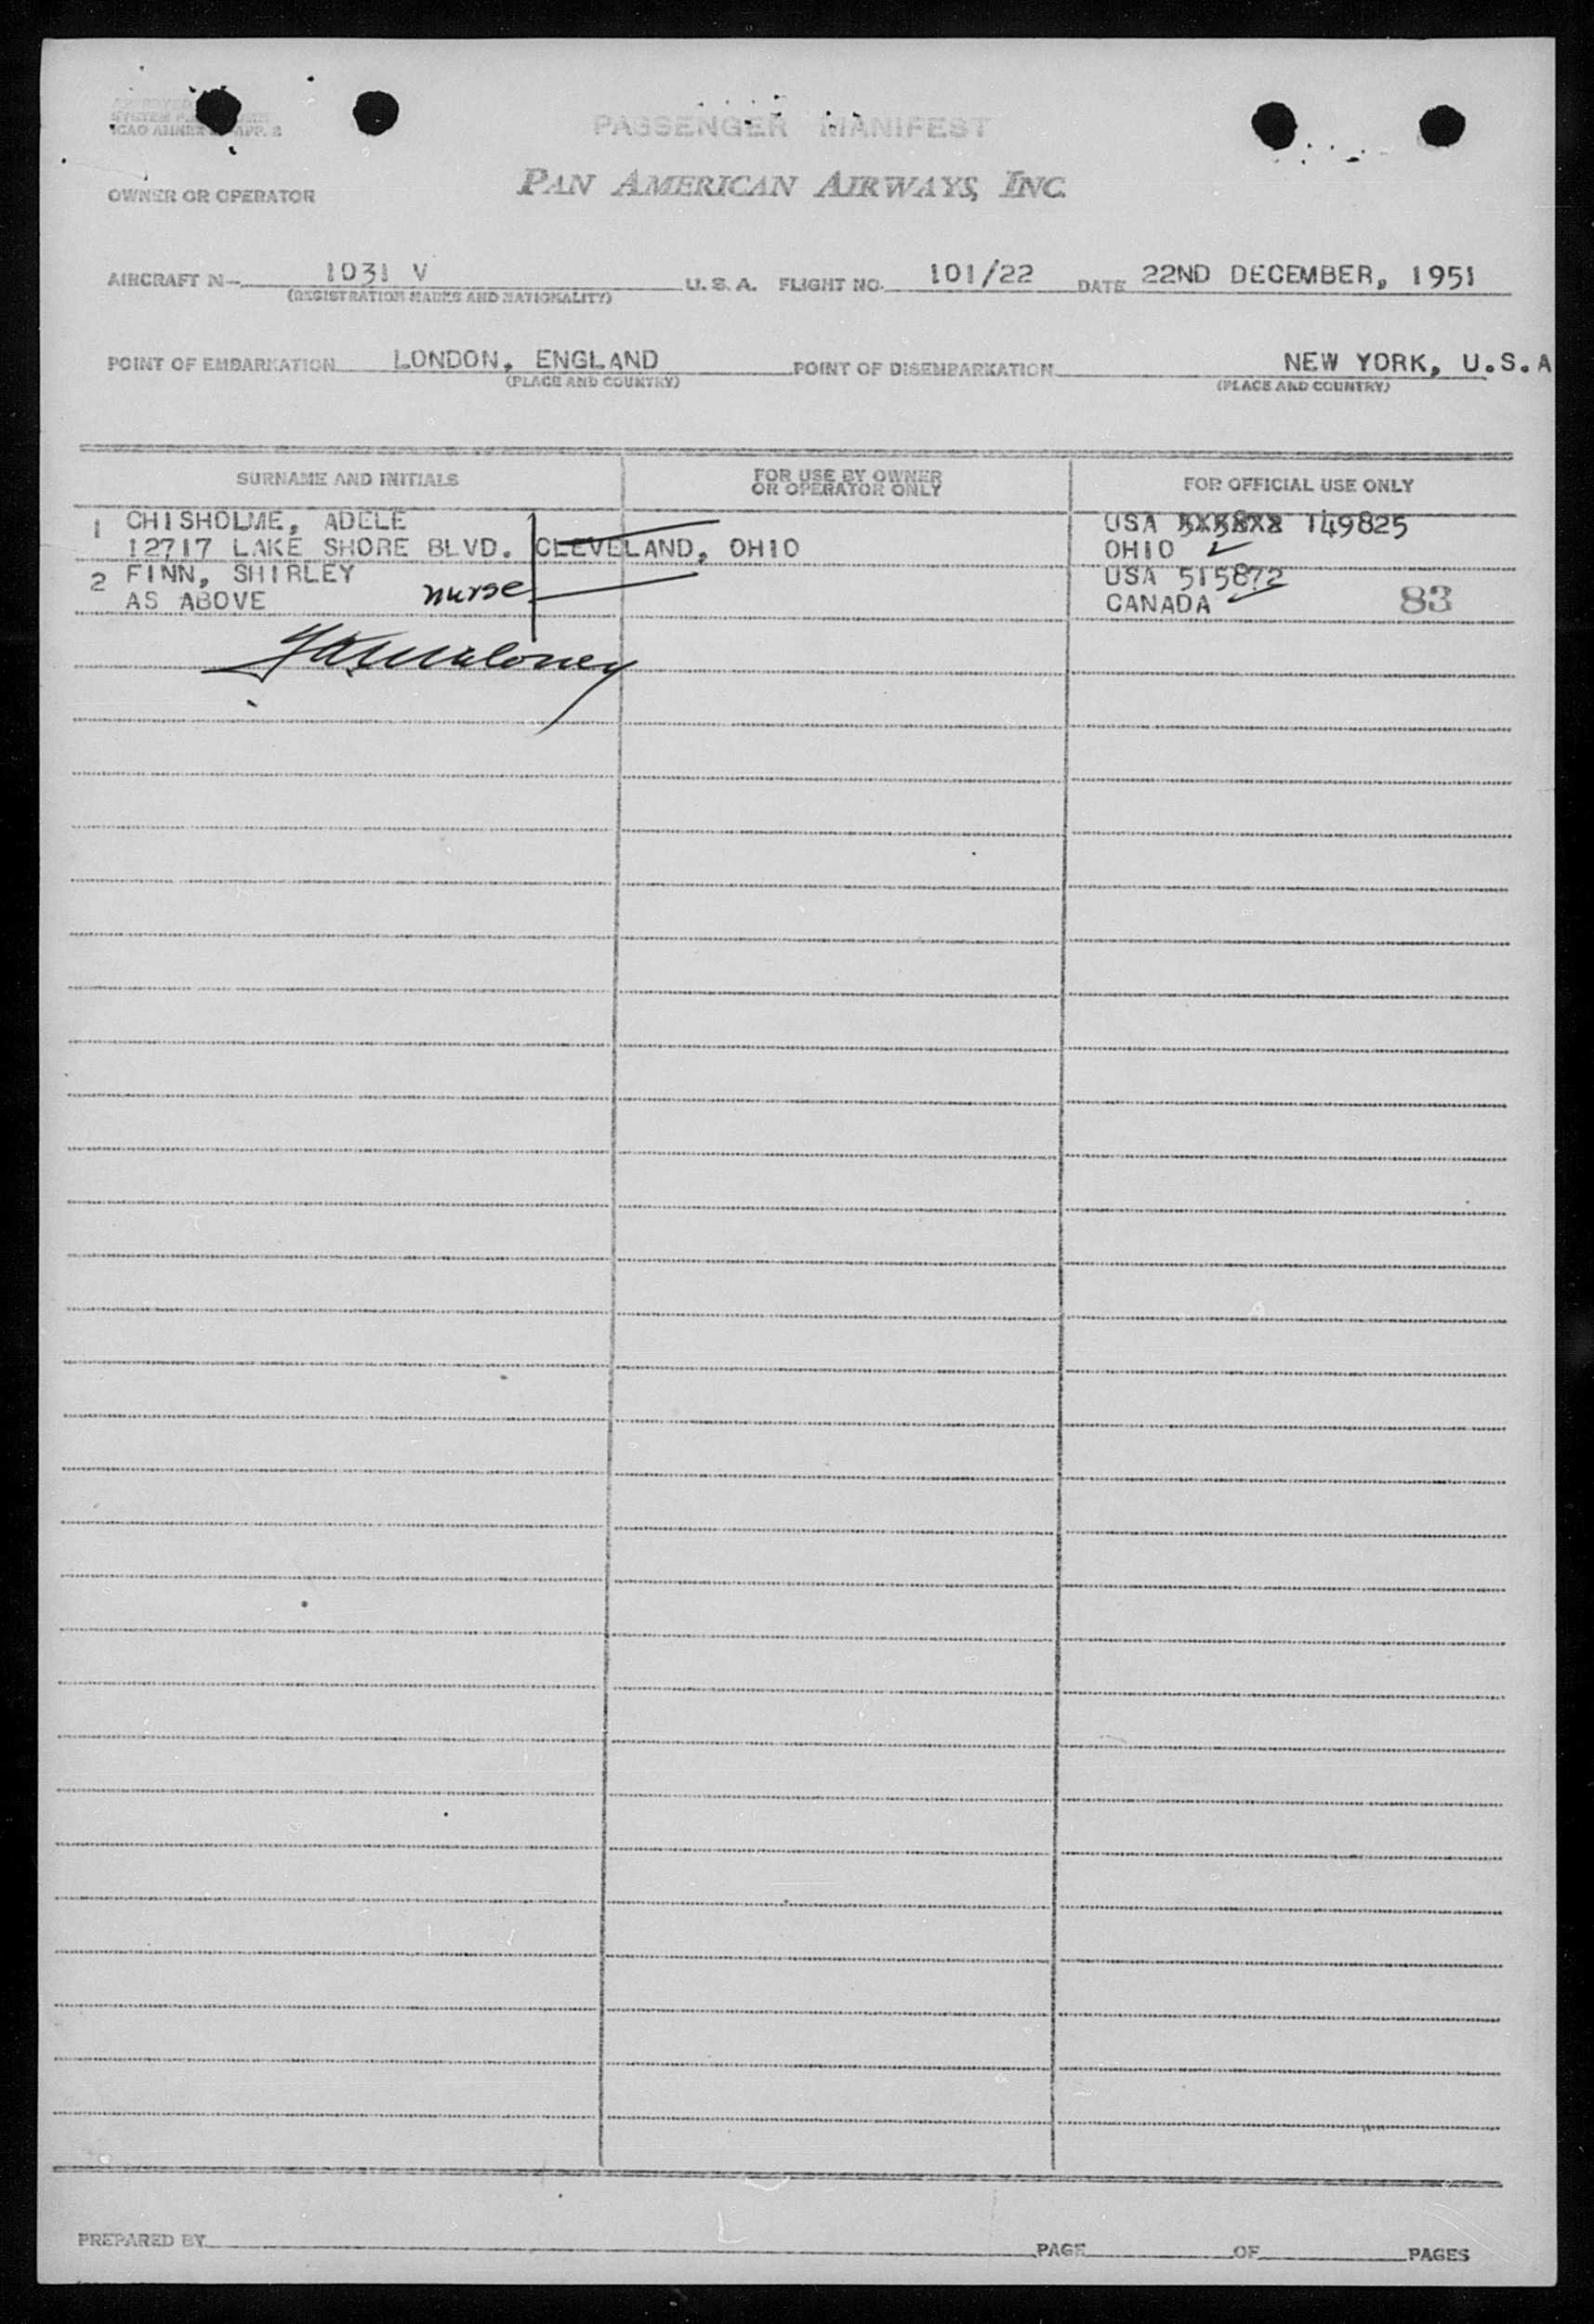 ICAO ANNEX APP. 2
PASSENGER MANIFEST
OWNER OR OPERATOR
PAN AMERICAN AIRWAYS, INC.
AIRCRAFT N- 1031 V U. S. A. FLIGHT NO. 101/22 DATE 22ND DECEMBER, 1951
(REGISTRATION MARKS AND NATIONALITY)
POINT OF EMBARKATION LONDON, ENGLAND POINT OF DISEMBARKATION NEW YORK, U.S.A
(PLACE AND COUNTRY) (PLACE AND COUNTRY)
SURNAME AND INITIALS FOR USE BY OWNER OR OPERATOR ONLY FOR OFFICIAL USE ONLY
1 CHISHOLME, ADELE USA 149825
12717 LAKE SHORE BLVD. CLEVELAND, OHIO OHIO
2 FINN, SHIRLEY USA 515872
AS ABOVE nurse CANADA 83
PREPARED BY PAGE OF PAGES